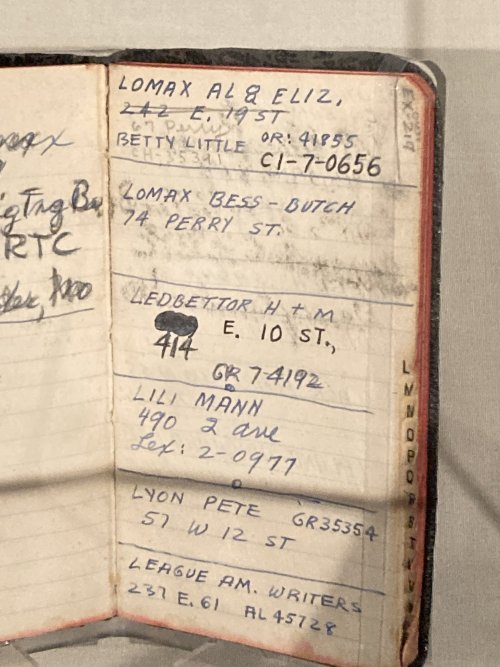 RTC
LOMAX AL & ELIZ.
242 E. 19 ST
BETTY LITTLE OR: 41855
CI-7-0656
LOMAX BESS - BUTCH
74 PERRY ST.
LEDBETTOR H + M
E. 10 ST.,
414
GR 7-4192
LILI MANN
490 2 ave
Lex: 2-0977
LYON PETE GR35354
57 W 12 ST
LEAGUE AM. WRITERS
237 E. 61 AL 45728
L
M
N
O
P
Q
R
S
T